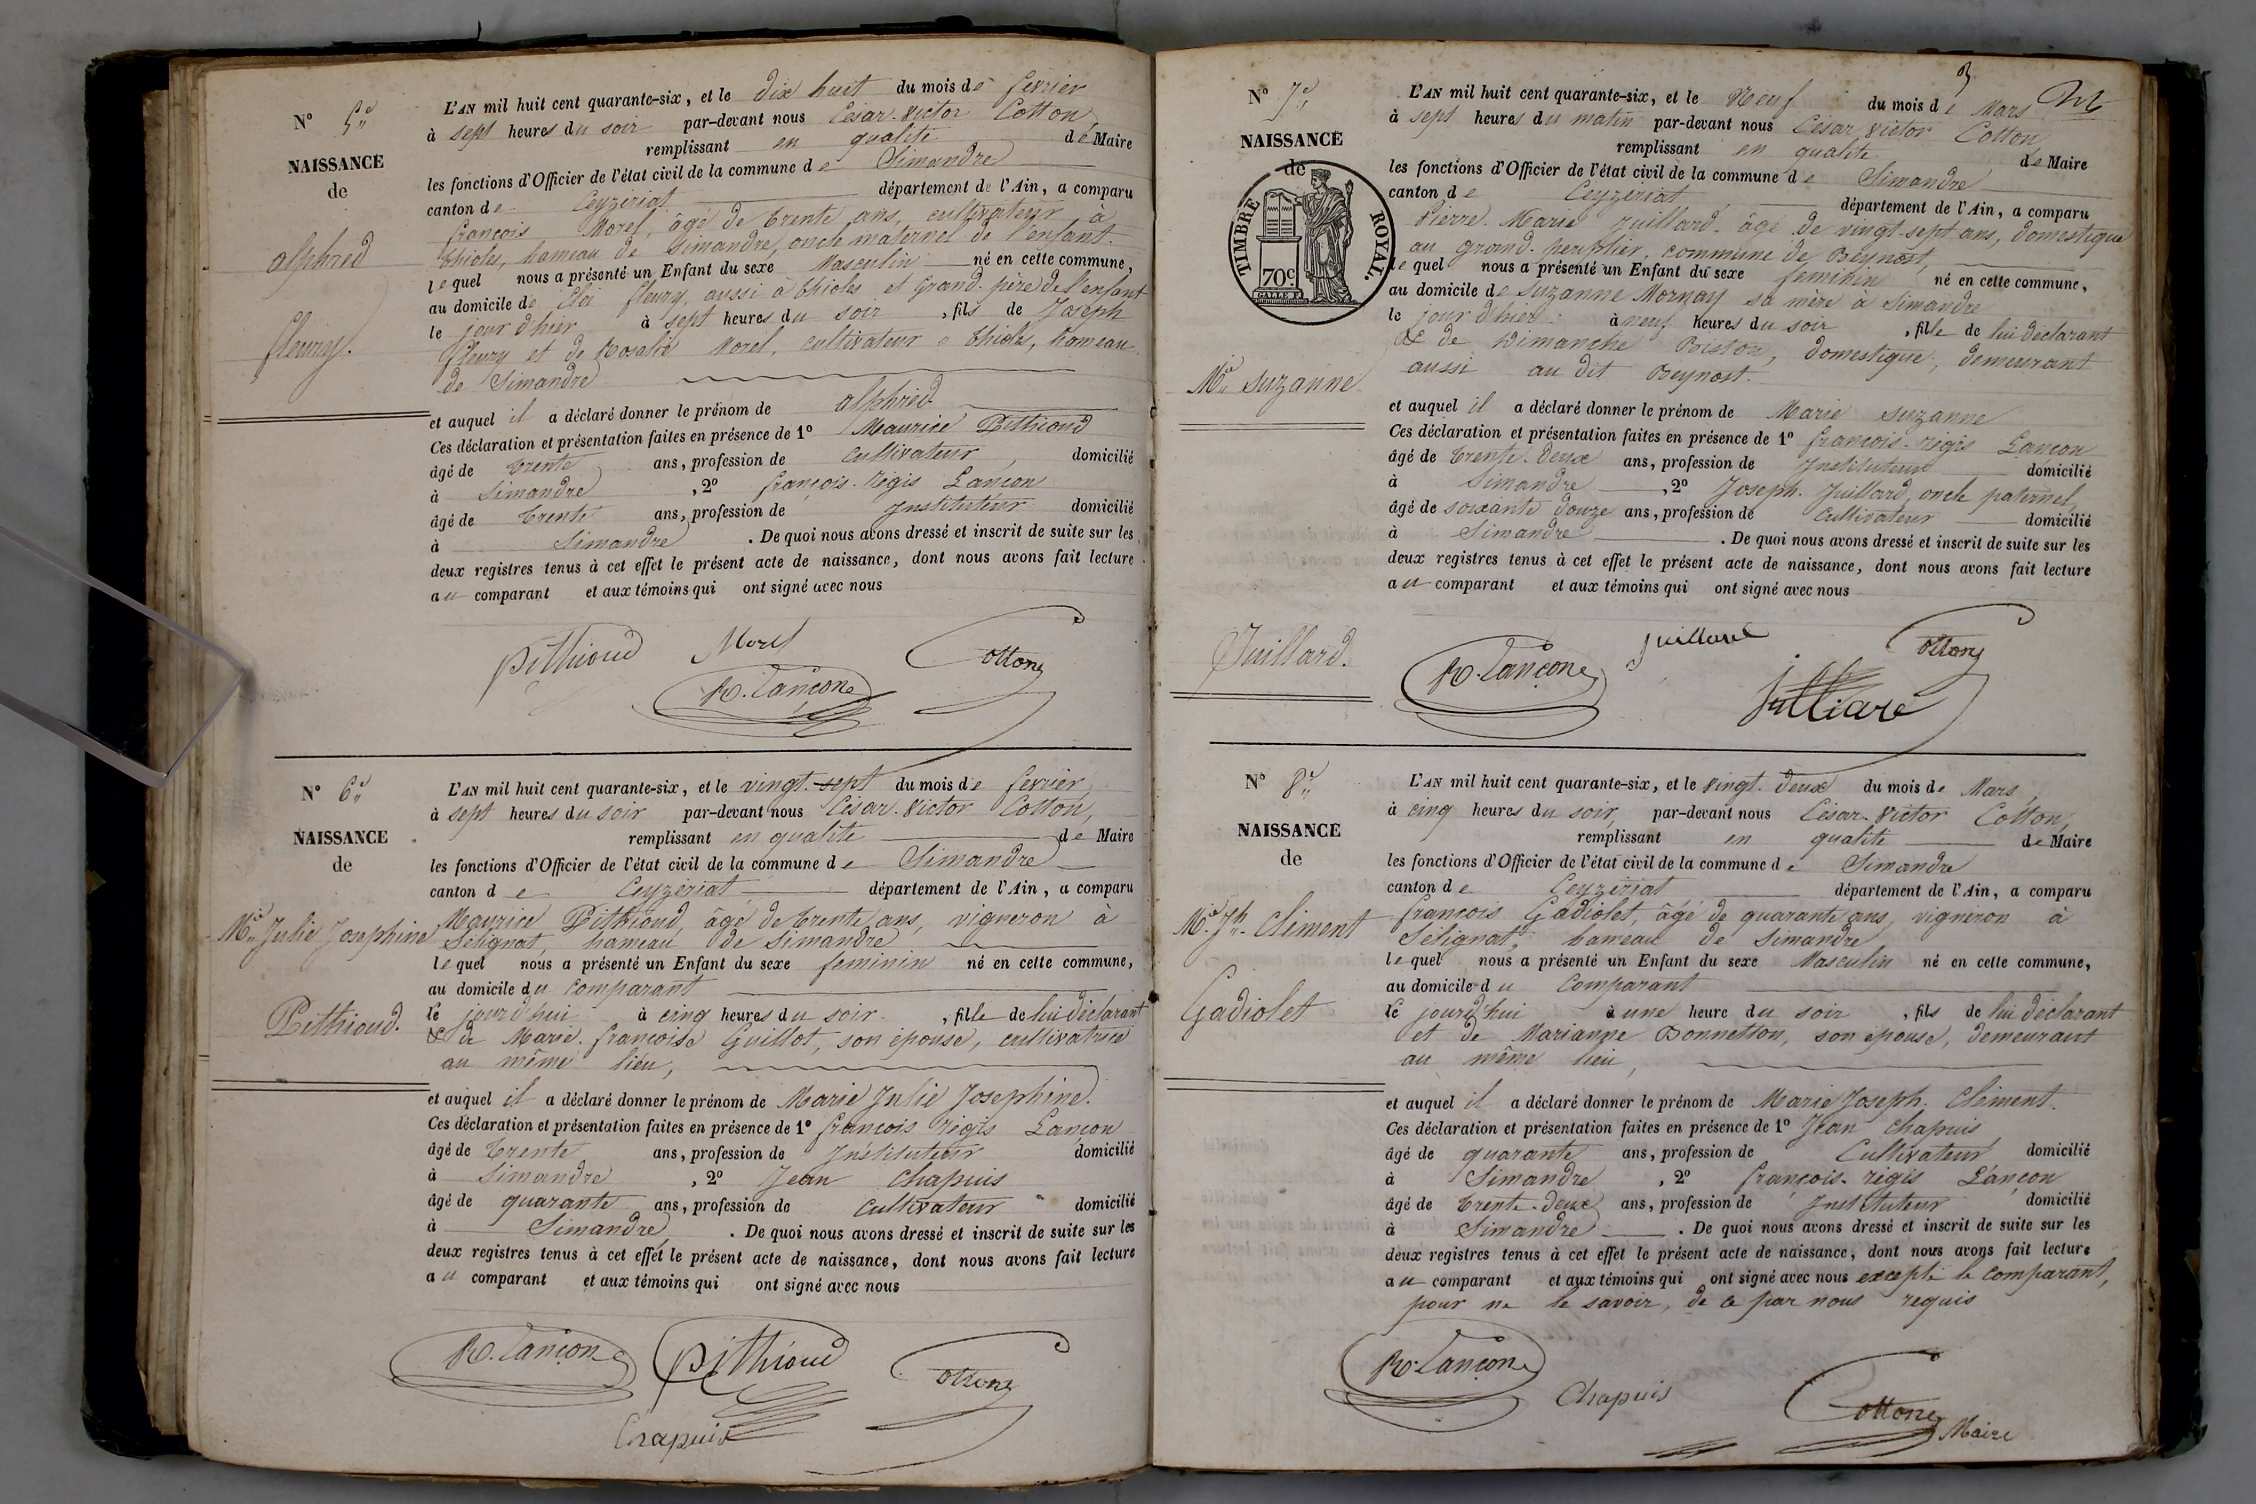 N° 5
NAISSANCE
de
alphred
fleury.
L'AN mil huit cent quarante-six, et le dix huit du mois de fevrier
à sept heures du soir par-devant nous César-Victor Cotton
remplissant en qualité de Maire
les fonctions d'Officier de l'état civil de la commune de Simandre
canton de Ceyzériat département de l'Ain, a comparu
françois Morel, âgé de trente ans, cultivateur à
thioles, hameau de Simandre, oncle maternel de l'enfant.
lequel nous a présenté un Enfant du sexe Masculin né en cette commune,
au domicile de fleury, aussi à thioles et Grand-père de l'enfant
le jour d'hier à sept heures du soir, fils de Joseph
fleury et de Rosalie Morel, cultivateur à thioles, hameau
de Simandre
et auquel il a déclaré donner le prénom de alphred
Ces déclaration et présentation faites en présence de 1° Maurice Pithioud
âgé de trente ans, profession de cultivateur, domicilié
à Simandre, 2° françois-Régis Lançon
âgé de trente ans, profession de Instituteur domicilié
à Simandre. De quoi nous avons dressé et inscrit de suite sur les
deux registres tenus à cet effet le présent acte de naissance, dont nous avons fait lecture
au comparant et aux témoins qui ont signé avec nous
Pithioud Morel Cotton
R. Lançon
N° 6
NAISSANCE
de
Mie Julie Josephine
Pithioud.
L'AN mil huit cent quarante-six, et le vingt-sept du mois de fevrier
à sept heures du soir par-devant nous César-Victor Cotton,
remplissant en qualité de Maire
les fonctions d'Officier de l'état civil de la commune de Simandre
canton de Ceyzériat département de l'Ain, a comparu
Maurice Pithioud, âgé de trente ans, vigneron à
Sélignat, hameau de Simandre
lequel nous a présenté un Enfant du sexe feminin né en cette commune,
au domicile du comparant
le jourd'hui à cinq heures du soir, fille de lui déclarant
& de Marie-françoise Guillot, son épouse, cultivatrice
au même lieu,
et auquel il a déclaré donner le prénom de Marie Julie Josephine.
Ces déclaration et présentation faites en présence de 1° françois régis Lançon
âgé de trente ans, profession de Instituteur domicilié
à Simandre, 2° Jean Chapuis
âgé de quarante ans, profession de cultivateur domicilié
à Simandre. De quoi nous avons dressé et inscrit de suite sur les
deux registres tenus à cet effet le présent acte de naissance, dont nous avons fait lecture
au comparant et aux témoins qui ont signé avec nous
R. Lançon Pithioud Cotton
Chapuis
3
N° 7
NAISSANCE
de
TIMBRE ROYAL.
70c
Mie Suzanne
Juillard.
L'AN mil huit cent quarante-six, et le Neuf du mois de Mars
à sept heures du matin par-devant nous César Victor Cotton
remplissant en qualité de Maire
les fonctions d'Officier de l'état civil de la commune de Simandre
canton de Ceyzériat département de l'Ain, a comparu
Pierre-Marie Juillard, âgé de vingt-sept ans, domestique
au grand-peuplier, commune de Beynost,
lequel nous a présenté un Enfant du sexe feminin né en cette commune,
au domicile de Suzanne Mornay sa mère à Simandre
le jour d'hier à neuf heures du soir, fille de lui déclarant
& de Dimanche Biston, domestique, demeurant
aussi au dit Beynost.
et auquel il a déclaré donner le prénom de Marie Suzanne
Ces déclaration et présentation faites en présence de 1° françois-régis Lançon
âgé de trente-deux ans, profession de Instituteur domicilié
à Simandre, 2° Joseph Juillard, oncle paternel,
âgé de soixante douze ans, profession de Cultivateur domicilié
à Simandre. De quoi nous avons dressé et inscrit de suite sur les
deux registres tenus à cet effet le présent acte de naissance, dont nous avons fait lecture
au comparant et aux témoins qui ont signé avec nous
R. Lançon Juillard Cotton
Julliard
N° 8
NAISSANCE
de
Mie Jh Clément
Gadiolet
L'AN mil huit cent quarante-six, et le vingt-deux du mois de Mars,
à cinq heures du soir, par-devant nous César-Victor Cotton,
remplissant en qualité de Maire
les fonctions d'Officier de l'état civil de la commune de Simandre
canton de Ceyzériat département de l'Ain, a comparu
françois Gadiolet, âgé de quarante ans, vigneron à
Sélignat, hameau de Simandre
lequel nous a présenté un Enfant du sexe Masculin né en cette commune,
au domicile du Comparant
le jourd'hui à une heure du soir, fils de lui déclarant
et de Marianne Bonnetton, son épouse, demeurant
au même lieu,
et auquel il a déclaré donner le prénom de Marie Joseph Clément.
Ces déclaration et présentation faites en présence de 1° Jean Chapuis
âgé de quarante ans, profession de Cultivateur domicilié
à Simandre, 2° françois-régis Lançon
âgé de trente-deux ans, profession de Instituteur domicilié
à Simandre. De quoi nous avons dressé et inscrit de suite sur les
deux registres tenus à cet effet le présent acte de naissance, dont nous avons fait lecture
au comparant et aux témoins qui ont signé avec nous excepté le comparant,
pour ne le savoir, de ce par nous requis
R. Lançon Chapuis Cotton
Maire